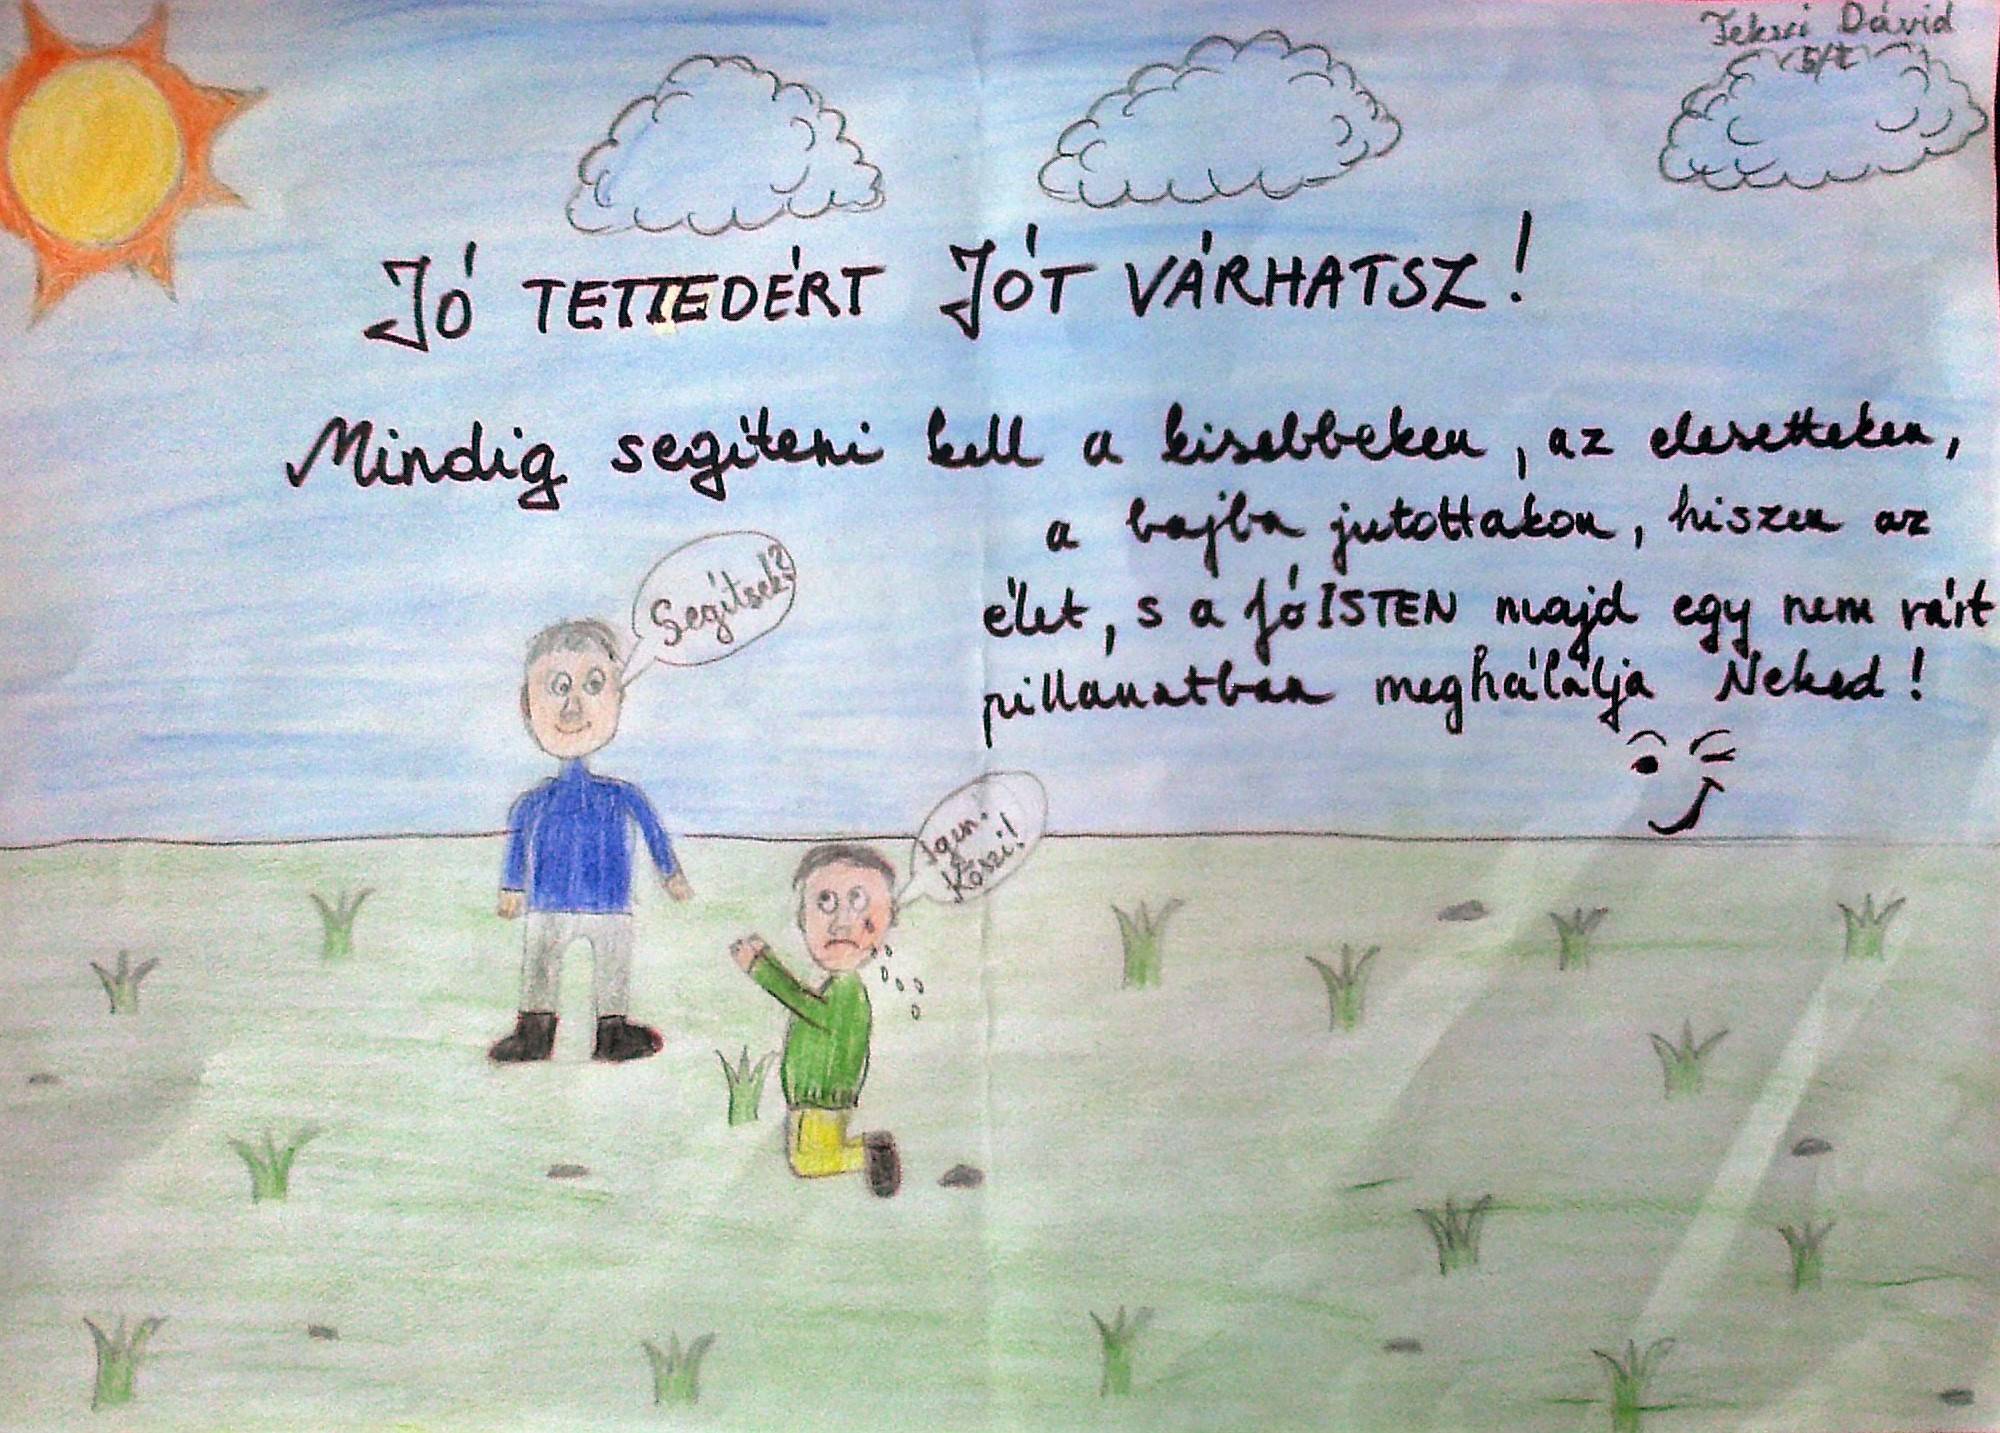 Dávid
JÓ TETTEDÉRT JÓT VÁRHATSZ!
Mindig segíteni kell a kisebbeken, az elesetteken,
a bajba jutottakon, hiszen az
élet, s a JÓISTEN majd egy nem várt
pillanatban meghálálja Neked!
Segítsek?
Igen.
Köszi!